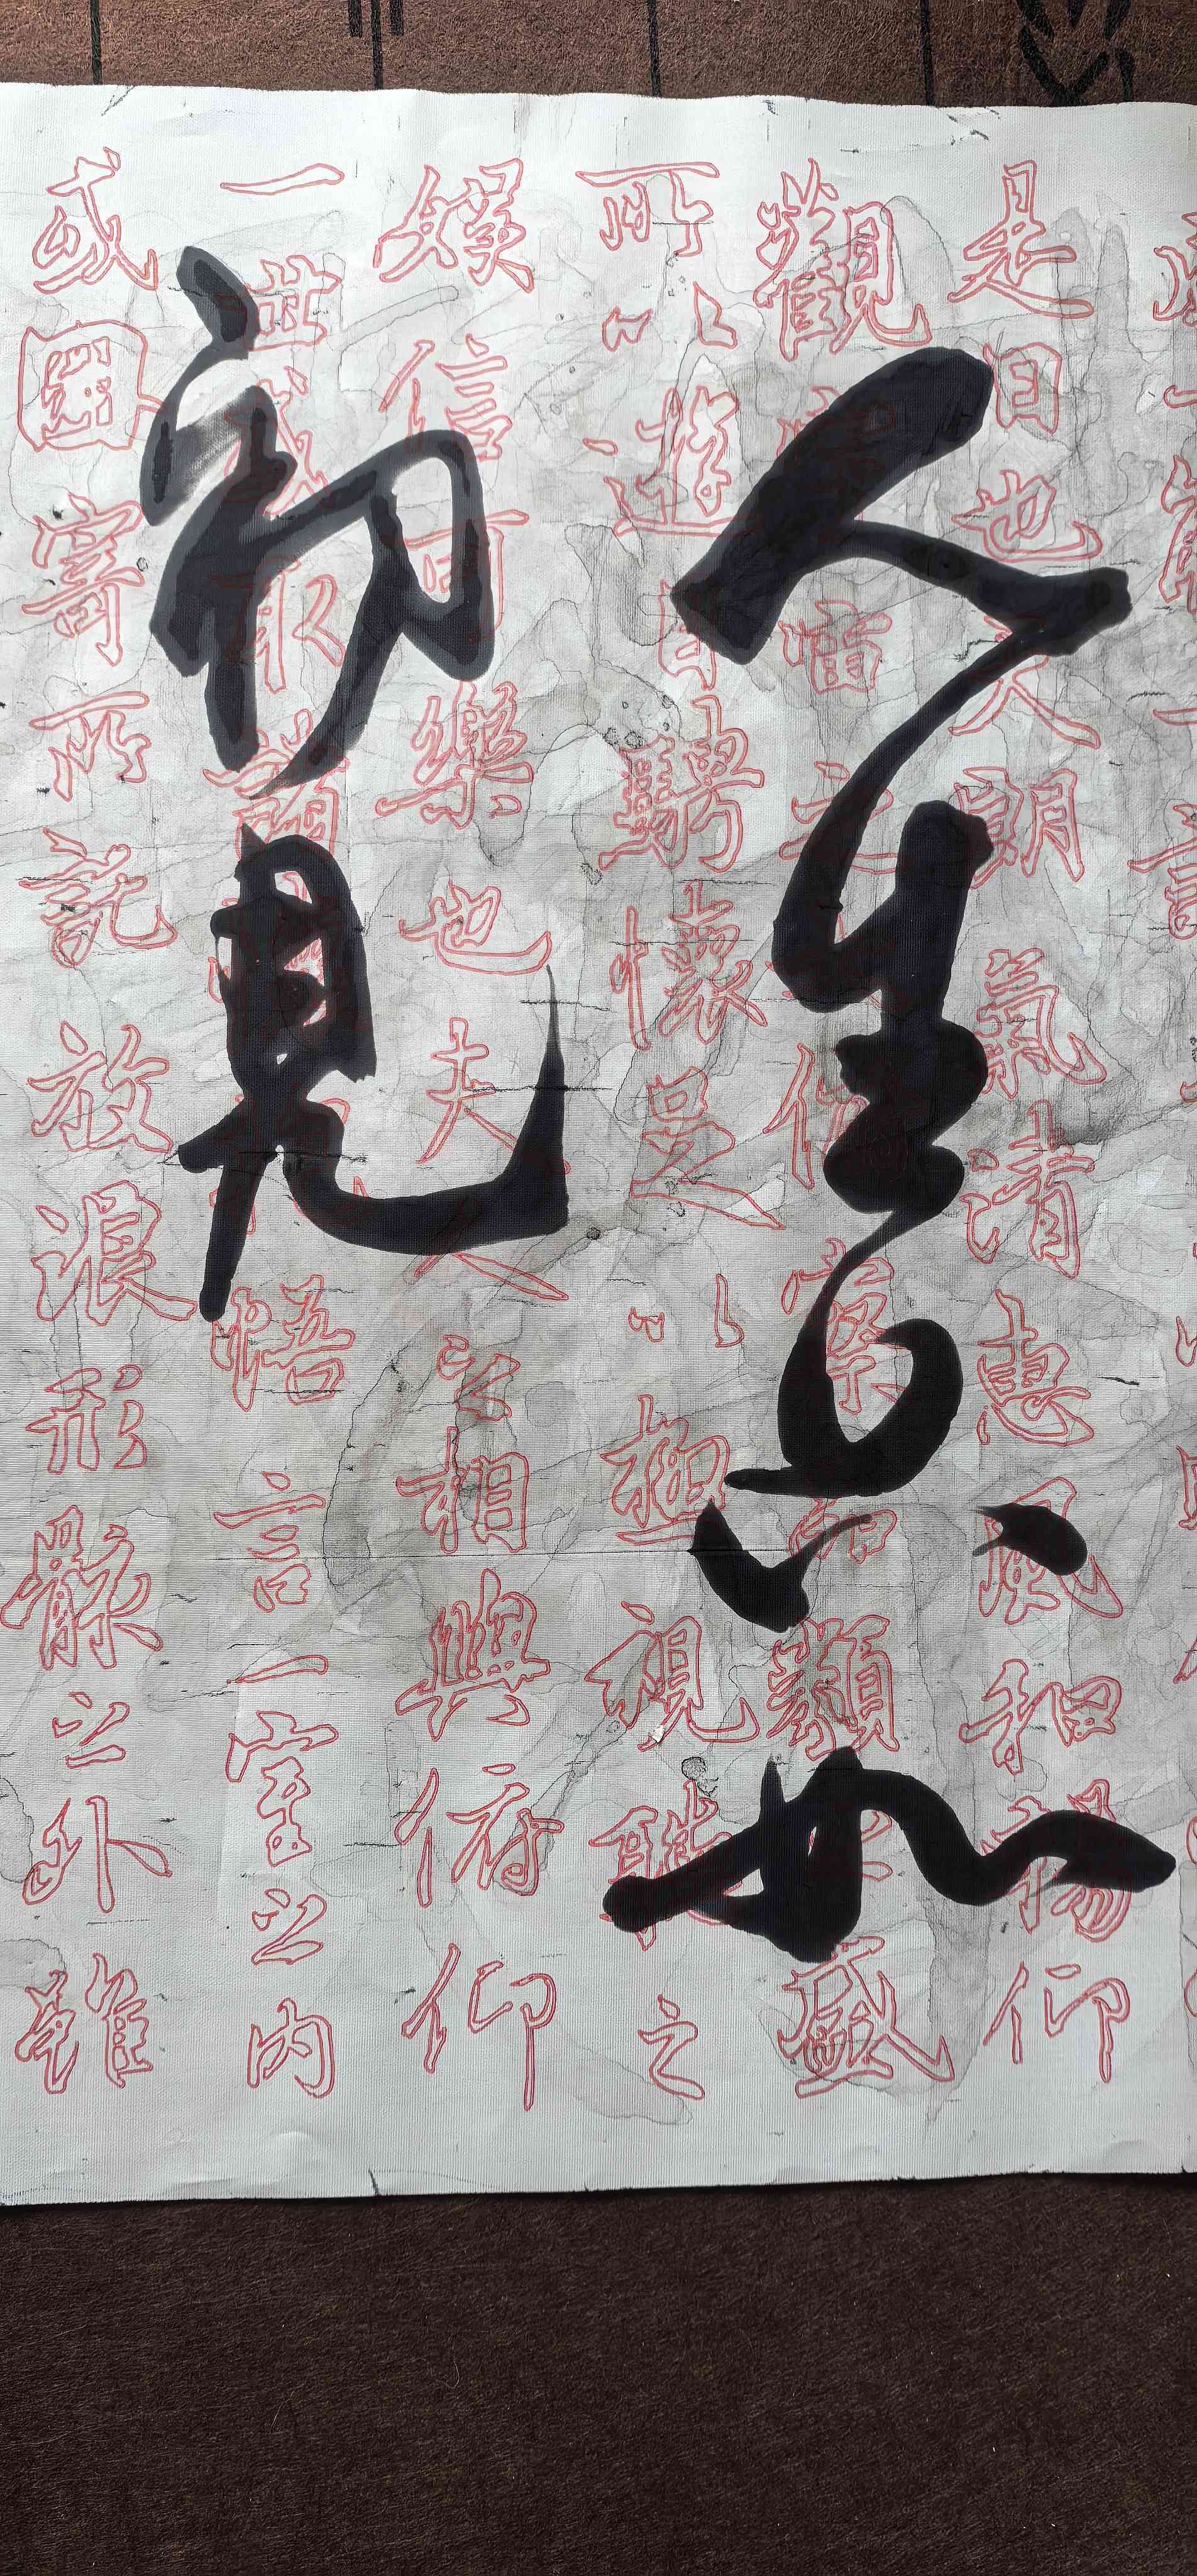 人生只如
初見
是日也天朗氣清惠風和暢仰
觀宇宙之大俯察品類之盛
所以遊目騁懷足以極視聽之
娛信可樂也夫人之相與俯仰
一世或取諸懷抱悟言一室之內
或因寄所託放浪形骸之外雖